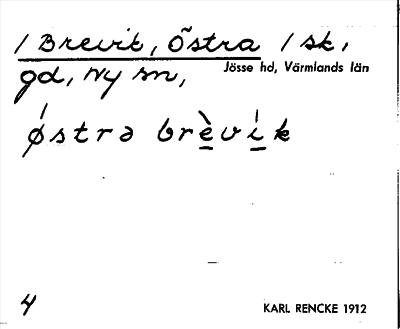 / Brevik, Östra / sk,
gd, Ny sn, Jösse hd, Värmlands län
østrə brèvik
4
KARL RENCKE 1912